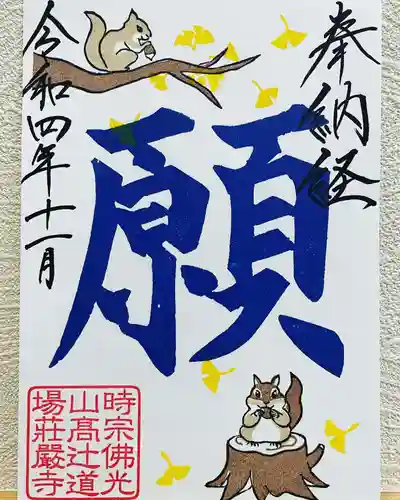 奉納経
願
令和四年十一月
時宗佛光
山髙辻道
場荘嚴寺